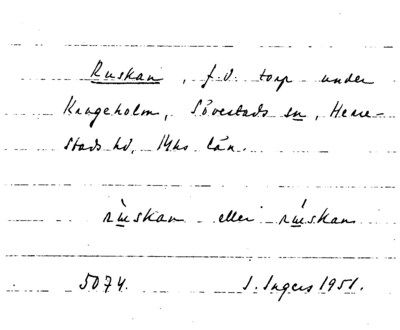 Ruskan, f.d. torp under
Krageholm, Sövestads sn, Herre-
stads hd, Mhs län.
rùskan eller rúskan
5074. I. Ingers 1951.